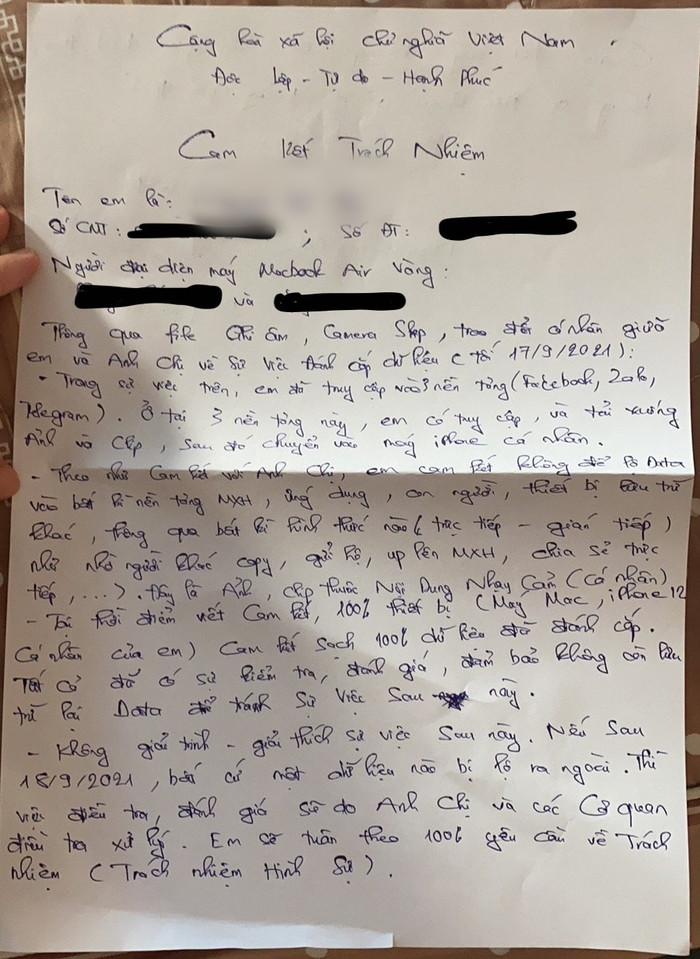 Cộng hoà xã hội chủ nghĩa Việt Nam.
Độc lập - Tự do - Hạnh Phúc
Cam kết Trách Nhiệm
Tên em là:
Số CNT: ; Số ĐT:
Người đại diện máy Macbook Air Vàng:
và
Thông qua file Ghi âm, Camera Shop, trao đổi cá nhân giữa
em và Anh Chị về Sự Việc Đánh cắp dữ liệu (Tối 17/9/2021):
- Trong sự việc trên, em đã truy cập vào 3 nền tảng (Facebook, Zalo,
Telegram). Ở tại 3 nền tảng này, em có truy cập, và tải xuống
Ảnh và Clip, sau đó chuyển vào máy iPhone cá nhân.
- Theo như Cam kết với Anh Chị, em cam kết không để lộ Data
vào bất kì nền tảng MXH, ứng dụng, con người, thiết bị lưu trữ
khác, thông qua bất kì hình thức nào (trực tiếp - gián tiếp)
như nhờ người khác copy, gửi hộ, up lên MXH, chia sẻ trực
tiếp, ...). Đây là Ảnh, clip thuộc Nội Dung Nhạy Cảm (Cá nhân)
- Tại thời điểm viết Cam kết, 100% thiết bị (Máy Mac, iPhone 12
Cá nhân của em) Cam kết Sạch 100% dữ liệu đã đánh cắp.
Tất cả đã có sự kiểm tra, đánh giá, đảm bảo không còn lưu
trữ lại Data để tránh Sự Việc Sau này.
- Không giải trình - giải thích sự việc Sau này. Nếu Sau
18/9/2021, bất cứ một dữ liệu nào bị lộ ra ngoài. Thì
việc điều tra, đánh giá sẽ do Anh Chị và các Cơ quan
điều tra xử lý. Em sẽ tuân theo 100% yêu cầu về Trách
nhiệm (Trách nhiệm Hình Sự).